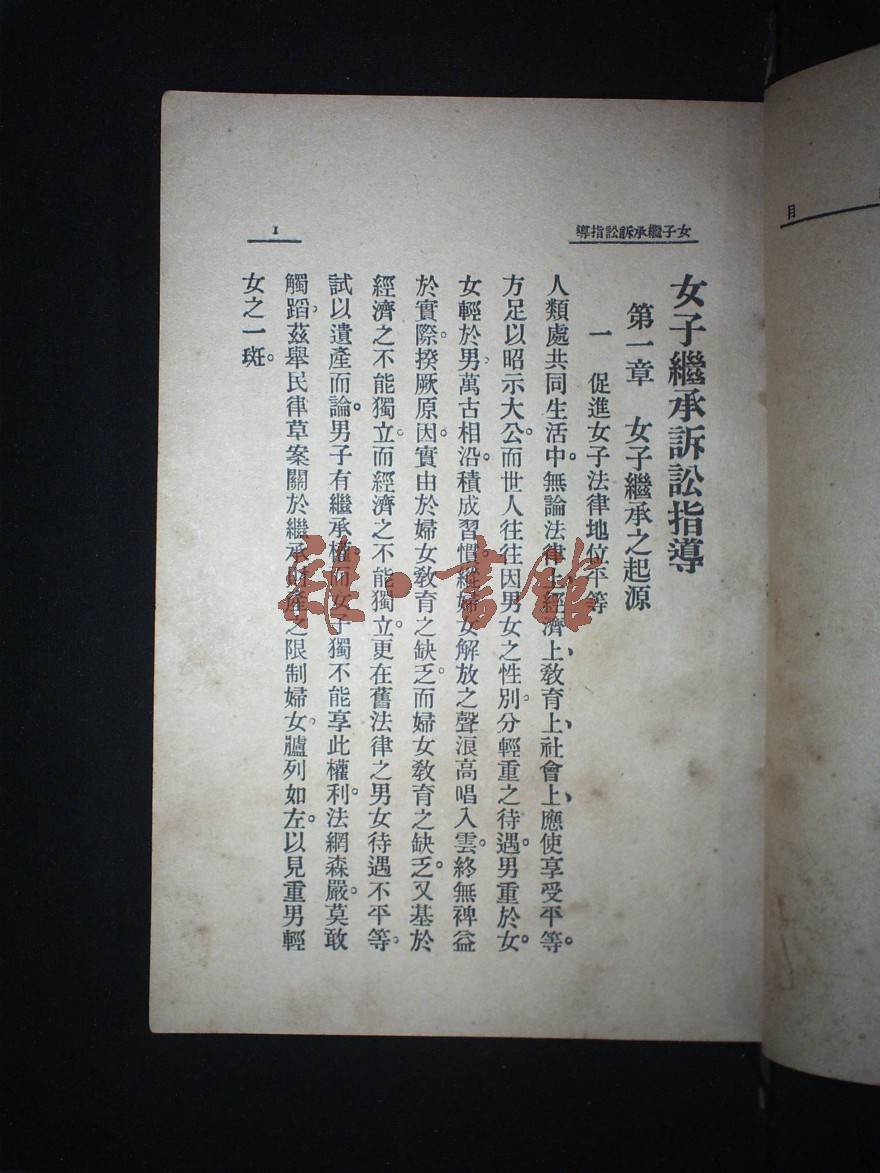 女子繼承訴訟指導
女子繼承訴訟指導
第一章　女子繼承之起源
一　促進女子法律地位平等
人類處共同生活中。無論法律上、經濟上、敎育上、社會上、應使享受平等。
方足以昭示大公。而世人往往因男女之性別。分輕重之待遇。男重於女。
女輕於男。萬古相沿。積成習慣。縱婦女解放之聲浪高唱入雲。終無裨益
於實際。揆厥原因。實由於婦女敎育之缺乏。而婦女敎育之缺乏。又基於
經濟之不能獨立。而經濟之不能獨立。更在舊法律之男女待遇不平等。
試以遺產而論。男子有繼承權。而女子獨不能享此權利。法網森嚴。莫敢
觸蹈。茲舉民律草案關於繼承財產之限制婦女。臚列如左。以見重男輕
女之一斑。
1
目
雅·書館